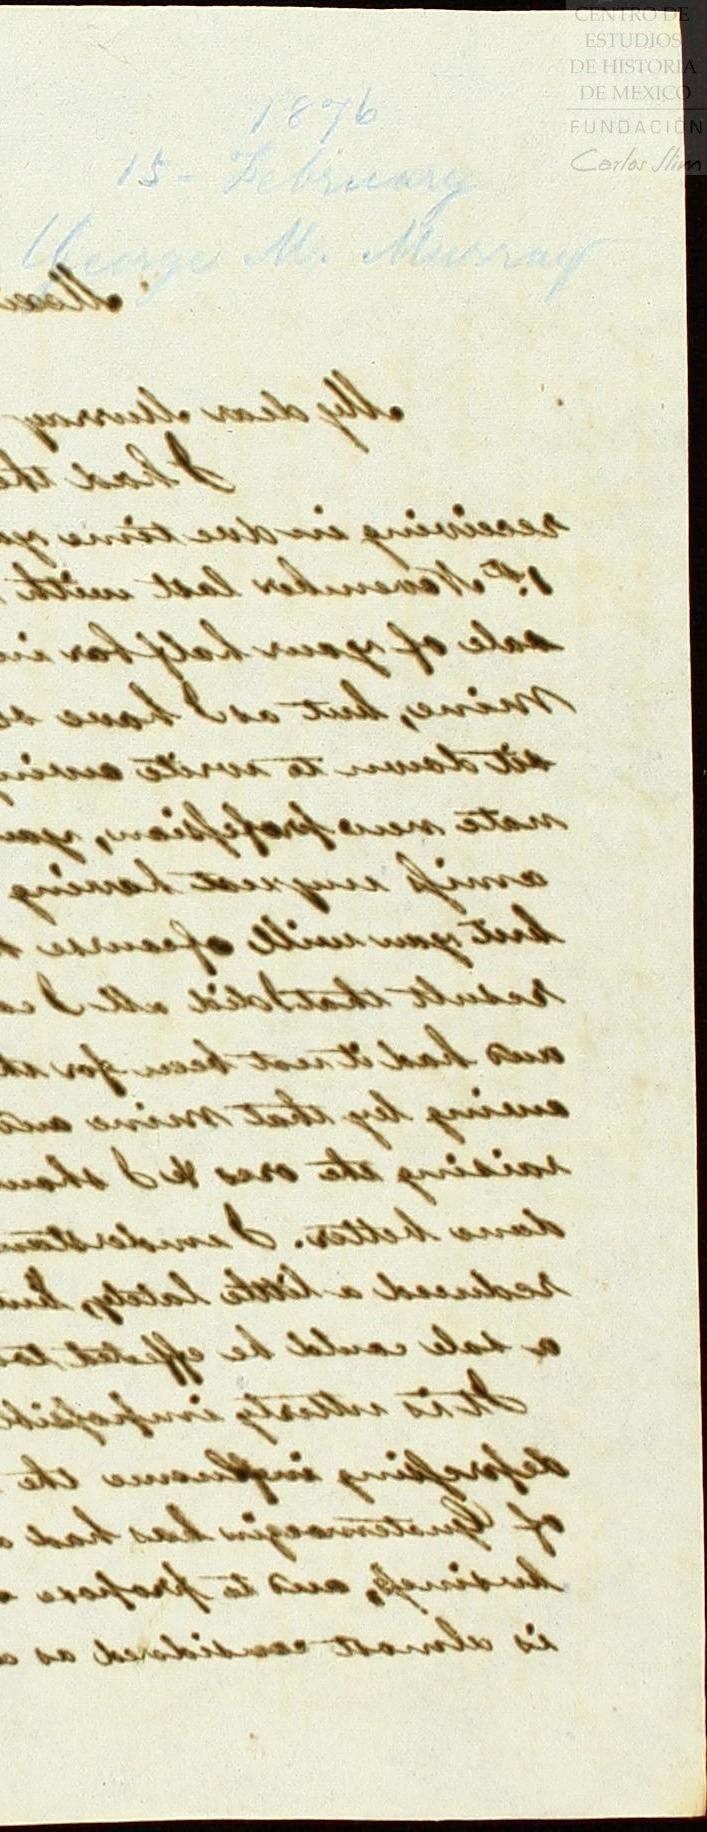 CENTRO DE
ESTUDIOS
DE HISTORIA
DE MEXICO
FUNDACIÓN
Carlos Slim
1876
15 - February
George M. Murray
Mexi
My dear Murray
I had the
receiving in due time yo
1st November last with
sale of your half bar in
Mine, but as I have
sit down to write owing
mate new profession, you
amiss my not having
but you will of course
result that I did all I co
and had it not been for
owing by that Mine and
raising the ores & I shou
done better. I understan
reduced a little lately, but
a sale could be effected
It is utterly impossibl
depressing influence the
of has had
business, and to propose
is almost considered as a